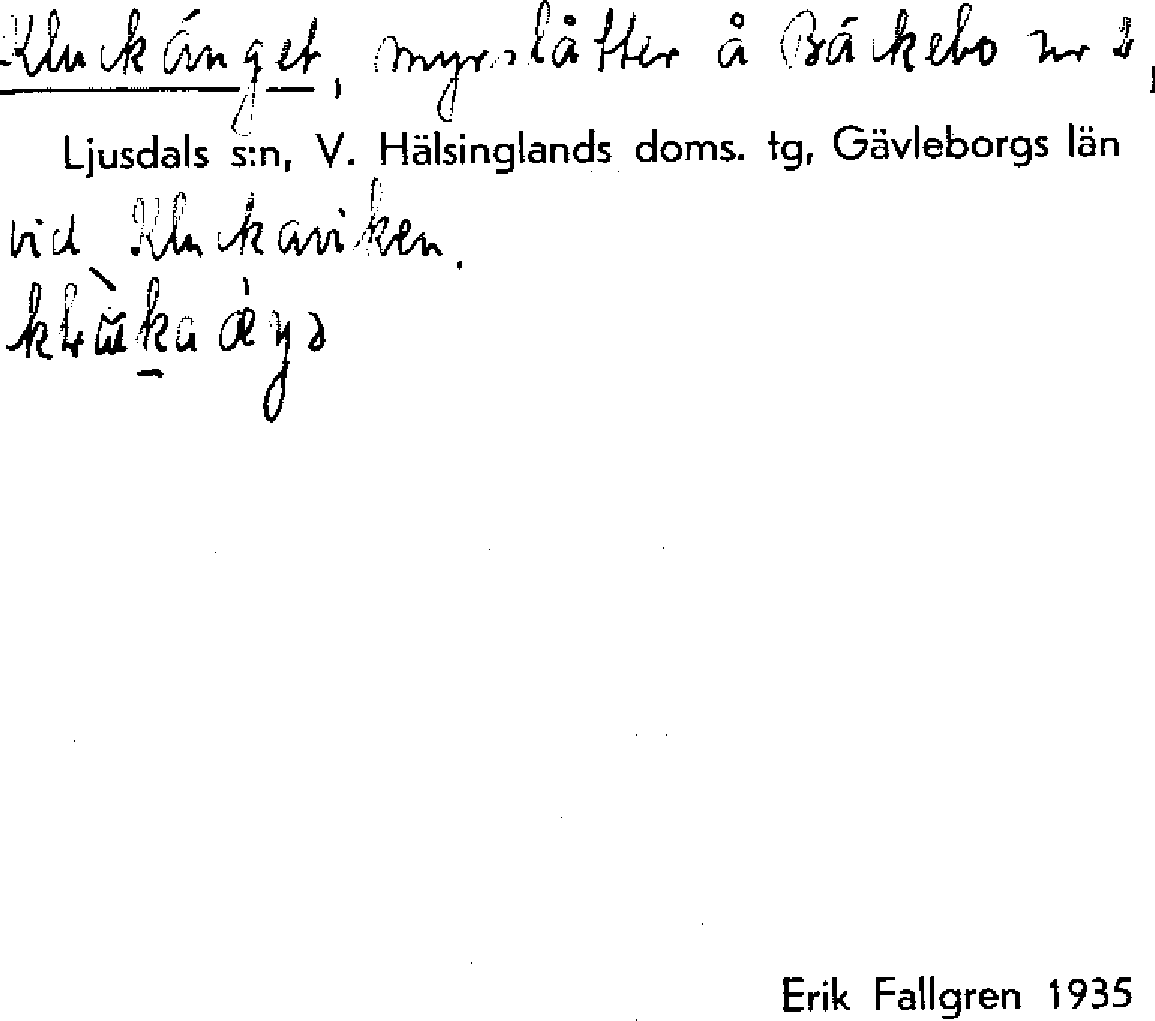 Kluckänget, myrslåtter å Bäckebo nr 2,
Ljusdals s:n, V. Hälsinglands doms. tg, Gävleborgs län
vid Kluckaviken.
Erik Fallgren 1935